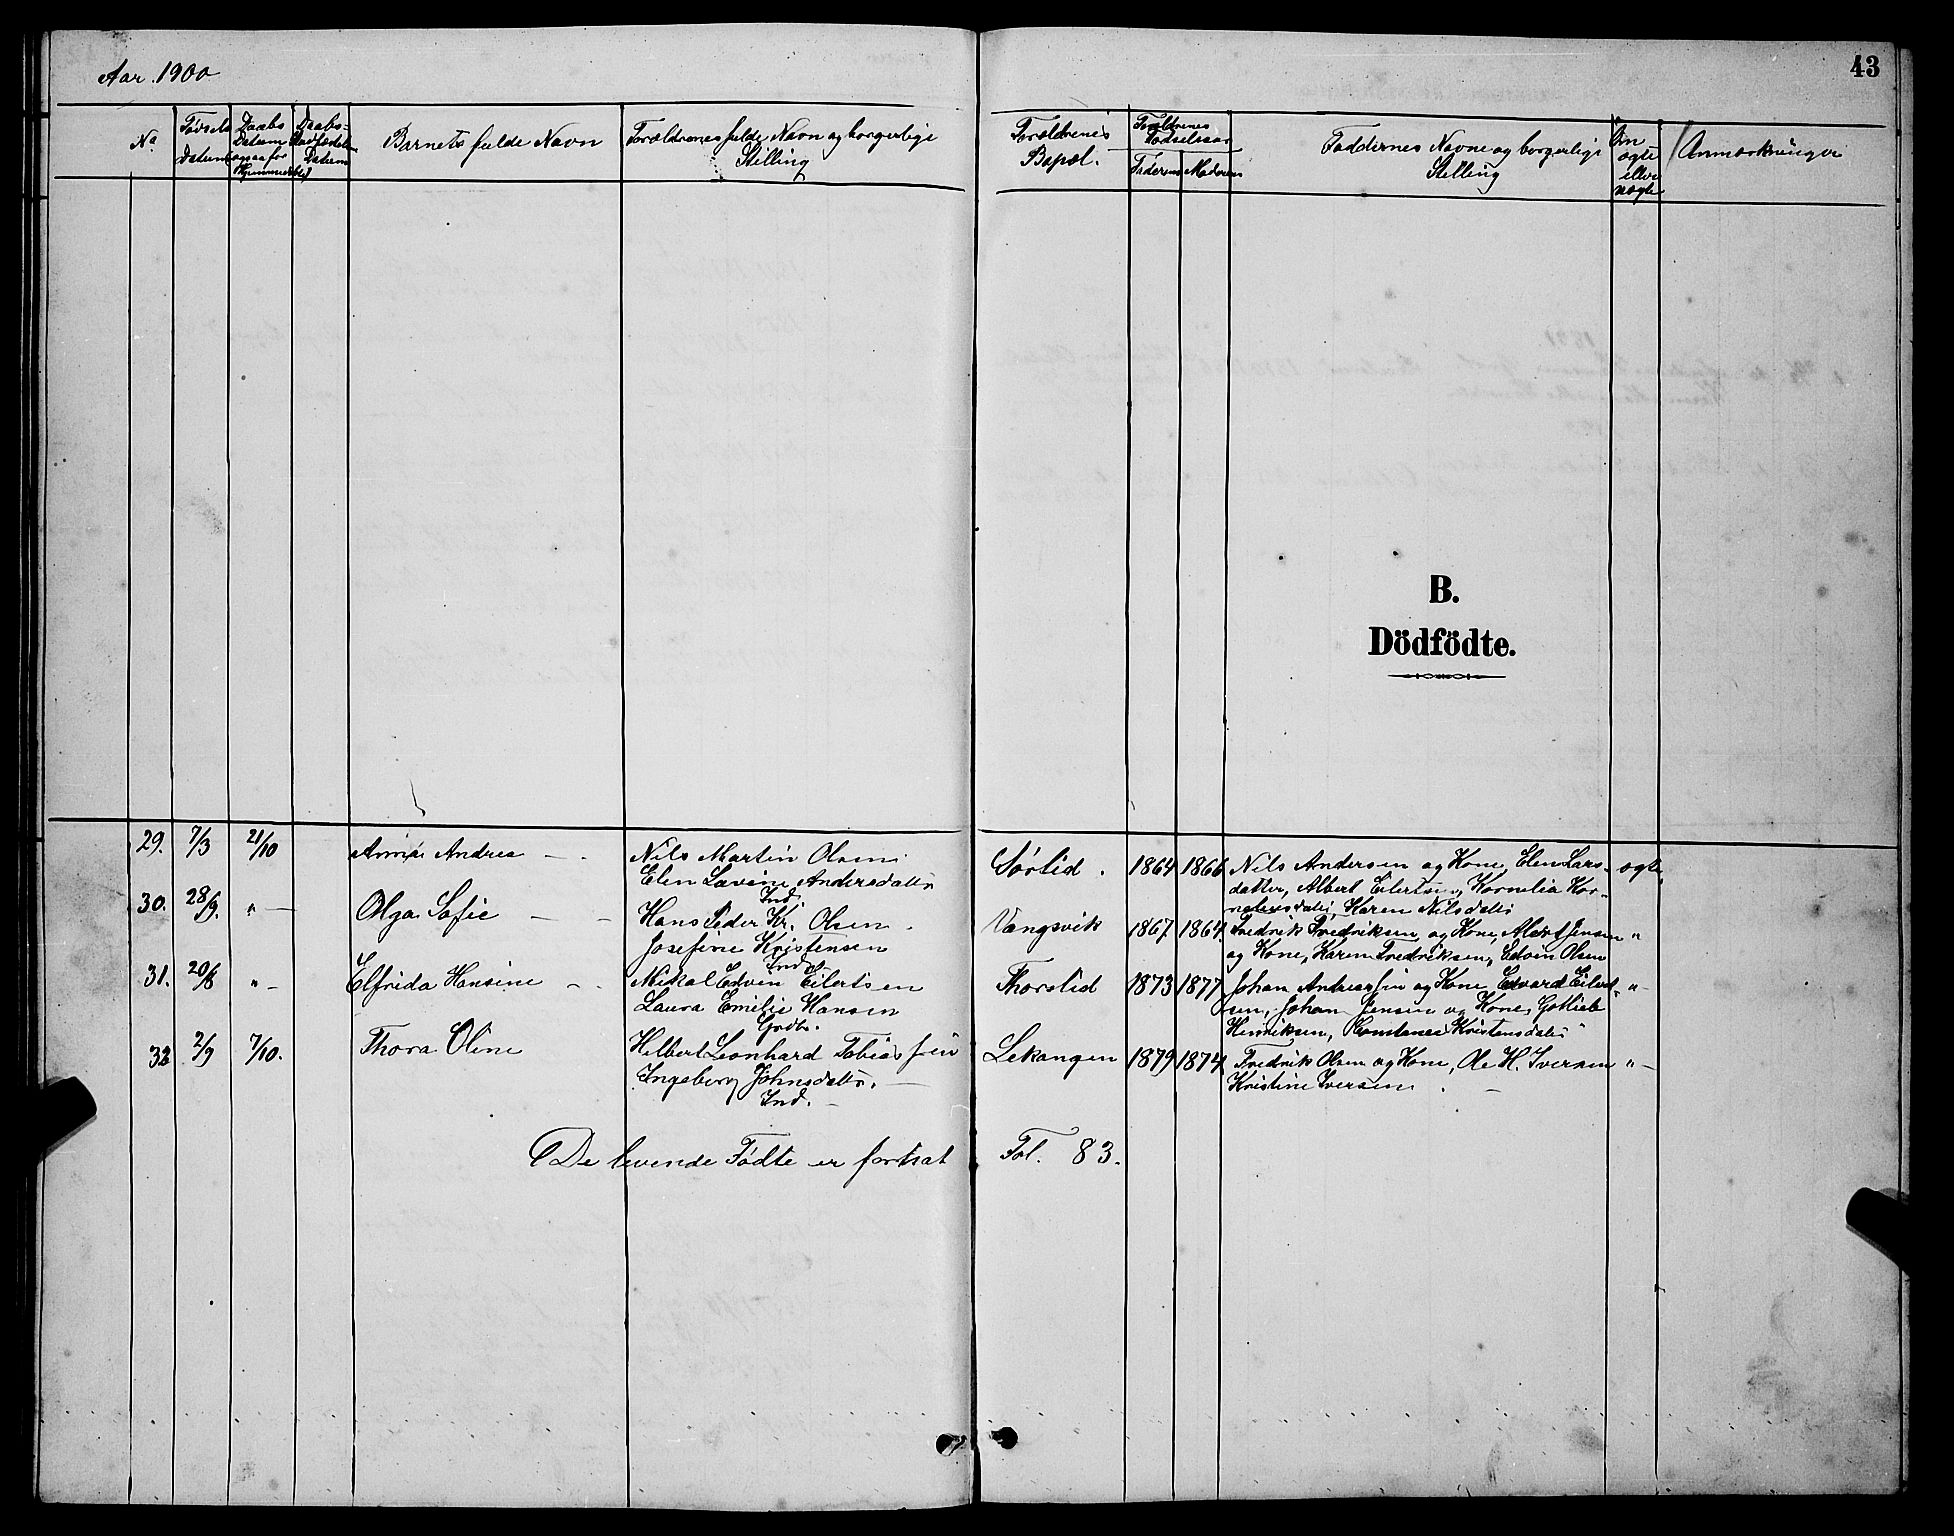 Aar. 1900
43
No.
Fødsels Datum
Daabs Datum ogsaa for Hjemmedøbt
Daabs= Stadfæstels Datum
Barnets fulde Navn
Forældrenes fulde Navn og borgerlige Stilling
Forældrenes Bopæl.
Forældrenes Fødselsaar
Faderens Moderens
Faddernes Navne og borgerlige Stilling
Om ægte eller uægte
Anmærkninger
B.
Dödfödte.
29. 7/3 21/10 Anna Andrea — Nils Martin Olsen Sørlid. 1864 1866 Nils Andersen og Kone, Elen Lars- ægte
Elen Lavine Andersdatter datter, Albert Eilertsen, Kornelia Kor-
Ind. neliusdatter, Karen Nilsdatter
30. 28/9. " — Olga Sofie — — Hans Peder Kr. Olsen. Vangsvik 1867 1864. Fredrik Fredriksen og Kone, Jensen "
Josefine Kristensen og Kone, Karen Fredriksen, Edvin Olsen
Ind.
31. 20/8 " — Elfrida Hansine — Mikal Edvin Eilertsen Thorslid 1873 1877 Johan og Kone, Edvard Eilert- "-
Laura Emilie Hansen sen, Johan Jensen og Kone, Gotlieb
Grdbr. Henriksen, Kristensdatter
32 2/9 7/10. Thora Oline Hilbert Leonhard Tobias sen Lekangen 1879 1874 Fredrik Olsen og Kone, Ole H. Iversen "-
Ingeborg Johnsdatter. — Kristine Iversen. —
Ind. —
De levende Fødte er fortsat Fol. 83.